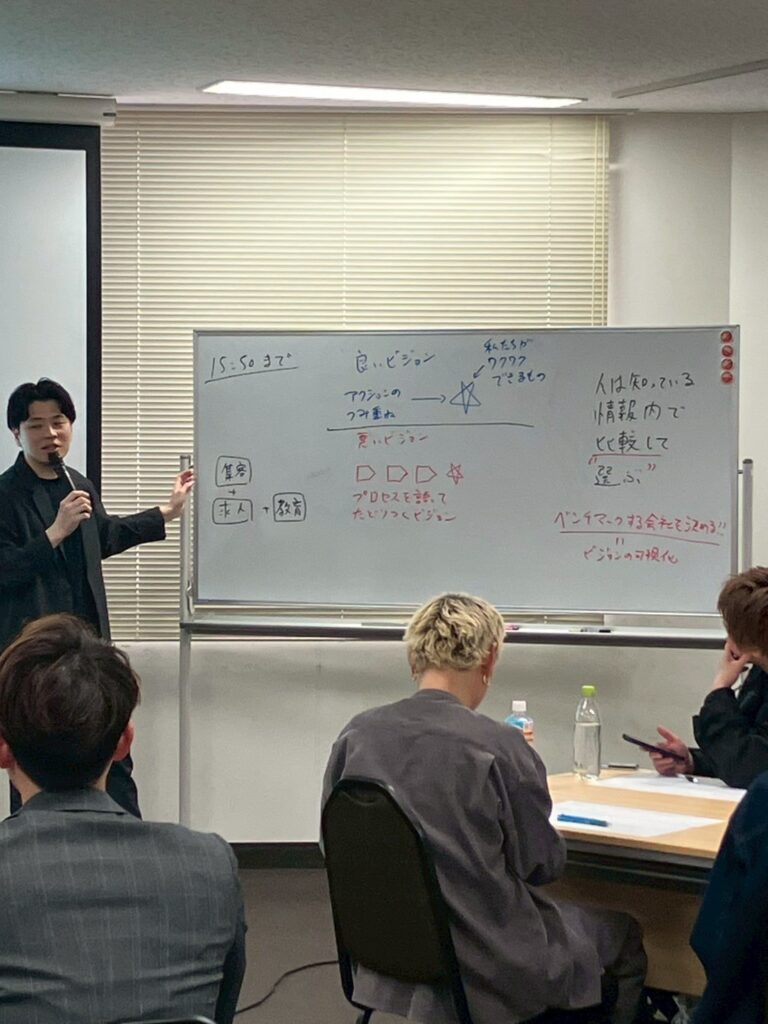 15:50 まで
良いビジョン
アクションの
つみ重ね
私たちが
ワクワク
できるもの
悪いビジョン
プロセスを認て
たどりつくビジョン
集客
+
求人 + 教育
人は知っている
情報内で
比較して
"選ぶ"
ベンチマークする会社を決める!!
"
ビジョンの可視化